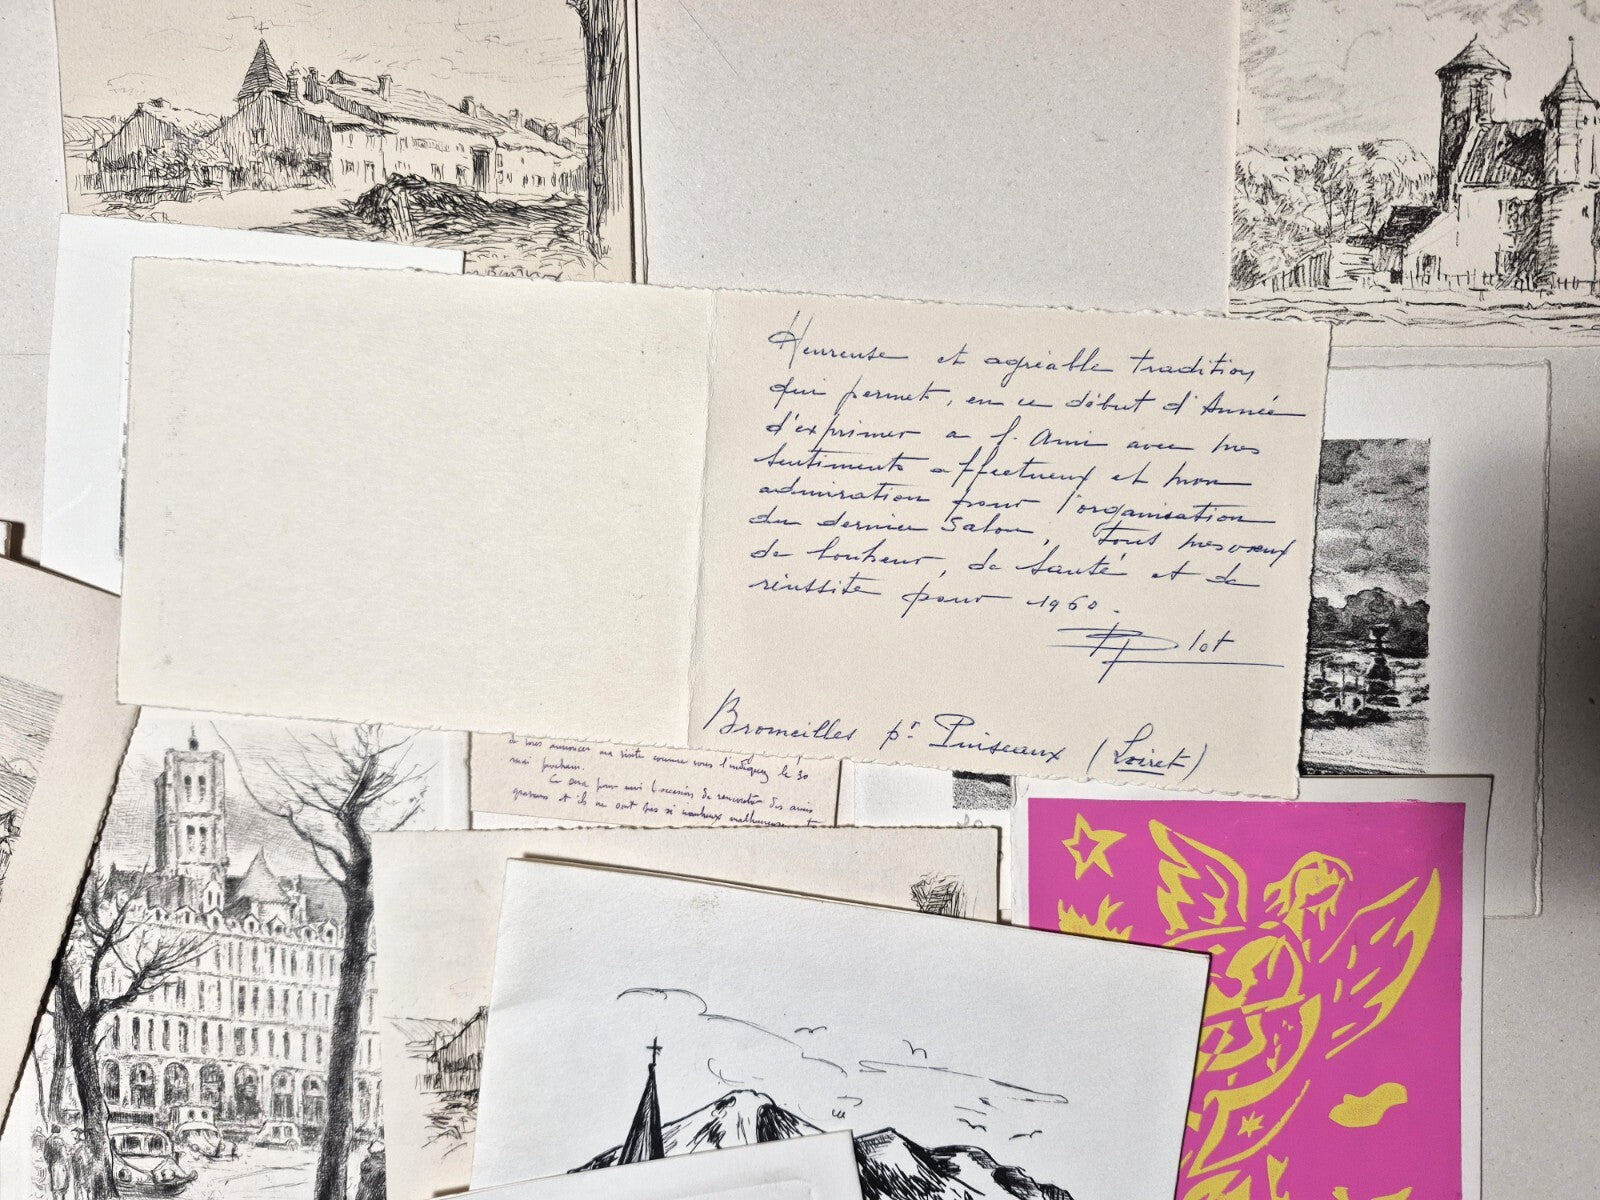 Heureuse et agréable tradition
qui permet, en ce début d'Année
d'exprimer a l'Ami avec mes
sentiments affectueux et mon
admiration pour l'organisation
du dernier Salon, tout mes vœux
de bonheur, de santé et de
réussite pour 1960.
Bromeilles pr Puiseaux (Loiret)
vous annoncer ma visite comme vous l'indiquez le 30
mai prochain.
Ce sera pour moi l'occasion de rencontrer des amis
graveurs et ils ne sont pas si nombreux malheureusement